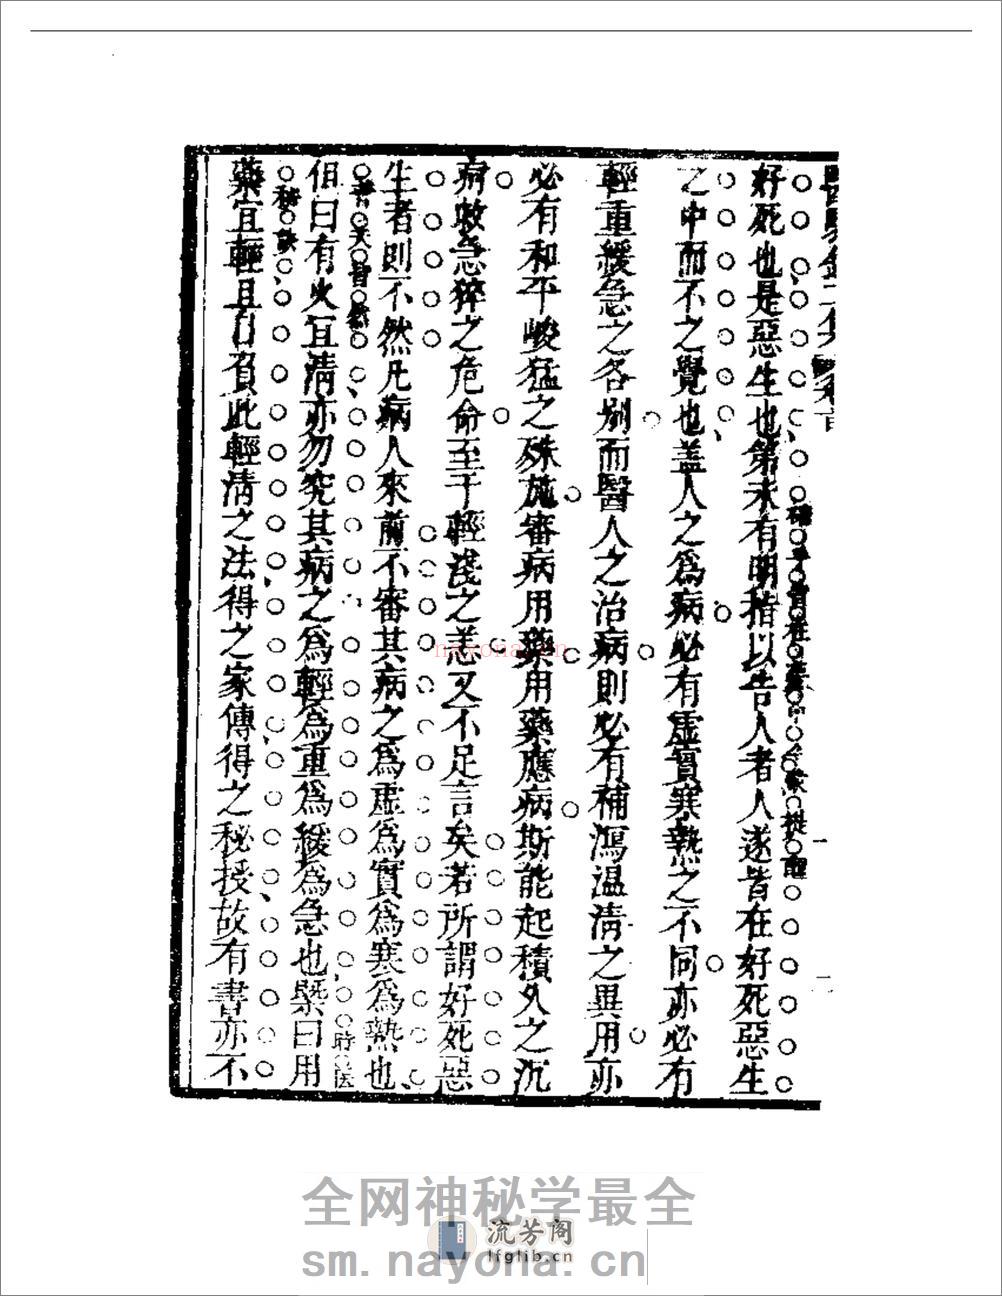 好死也是惡生也第未有明指以告人者人遂皆在好死惡生
之中而不之覺也盖人之為病必有虛實寒熱之不同亦必有
輕重緩急之各別而醫人之治病則必有補瀉温清之異用亦
必有和平峻猛之殊施審病用藥用藥應病斯能起積久之沉
病救急猝之危命至于輕淺之恙又不足言矣若所謂好死惡
生者則不然凡病人來前不審其病之為虛為實為寒為熱也
時医
書夫皆然
但曰有火宜清亦勿究其病之為輕為重為緩為急也槩曰用
秘訣
藥宜輕且自負此輕清之法得之家傳得之秘授故有書亦不
nayona.cn
全网神秘学最全
流芳阁
lfglib.cn
sm.nayona.cn